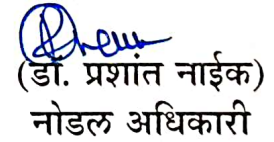 (डॉ. प्रशांत नाईक)
नोडल अधिकारी